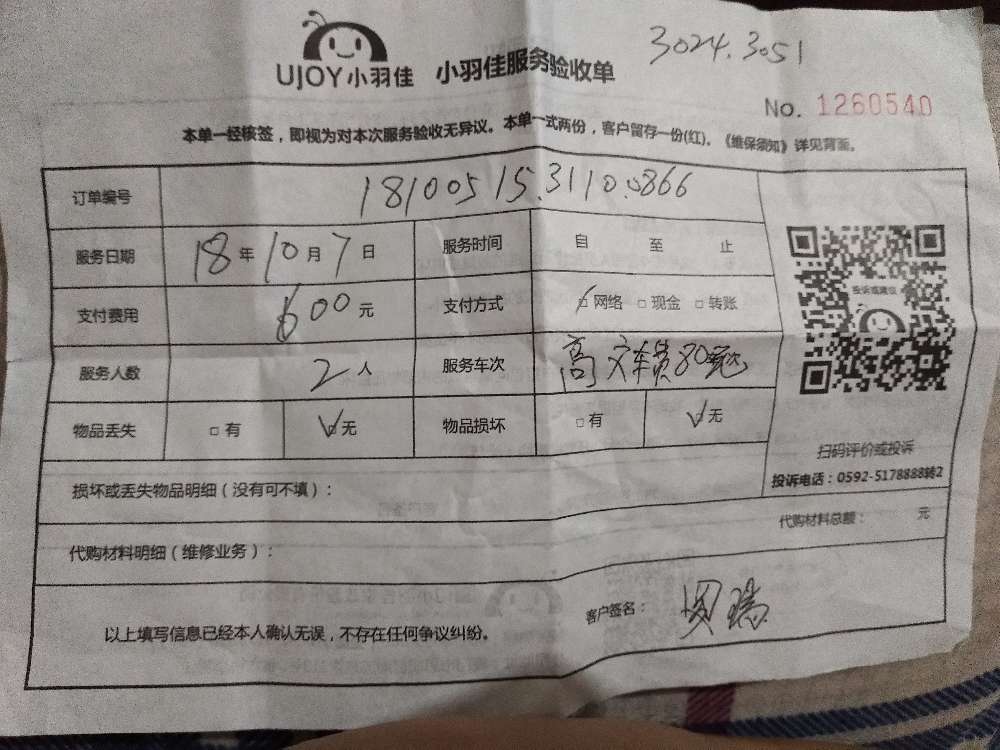 3024.3051
UJOY小羽佳 小羽佳服务验收单
No. 1260540
本单一经核签，即视为对本次服务验收无异议。本单一式两份，客户留存一份(红)。《维保须知》详见背面。
订单编号 18100515.31100866
服务日期 18年10月7日 服务时间 自 至 止
支付费用 600元 支付方式 网络 现金 转账
投诉或建议
服务人数 2人 服务车次 高 车费80元
物品丢失 有 无 物品损坏 有 无
扫码评价或投诉
投诉电话：0592-5178888转2
损坏或丢失物品明细（没有可不填）：
代购材料总额： 元
代购材料明细（维修业务）：
客户签名：
以上填写信息已经本人确认无误，不存在任何争议纠纷。